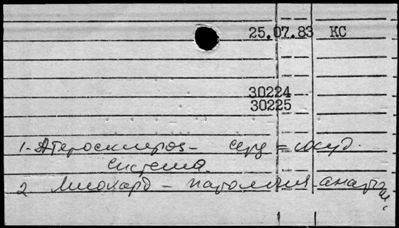 25.07.83 КС
30224
30225
1. Атеросклероз - серд = сосуд.
система.
2 Миокард - патология-анатом.